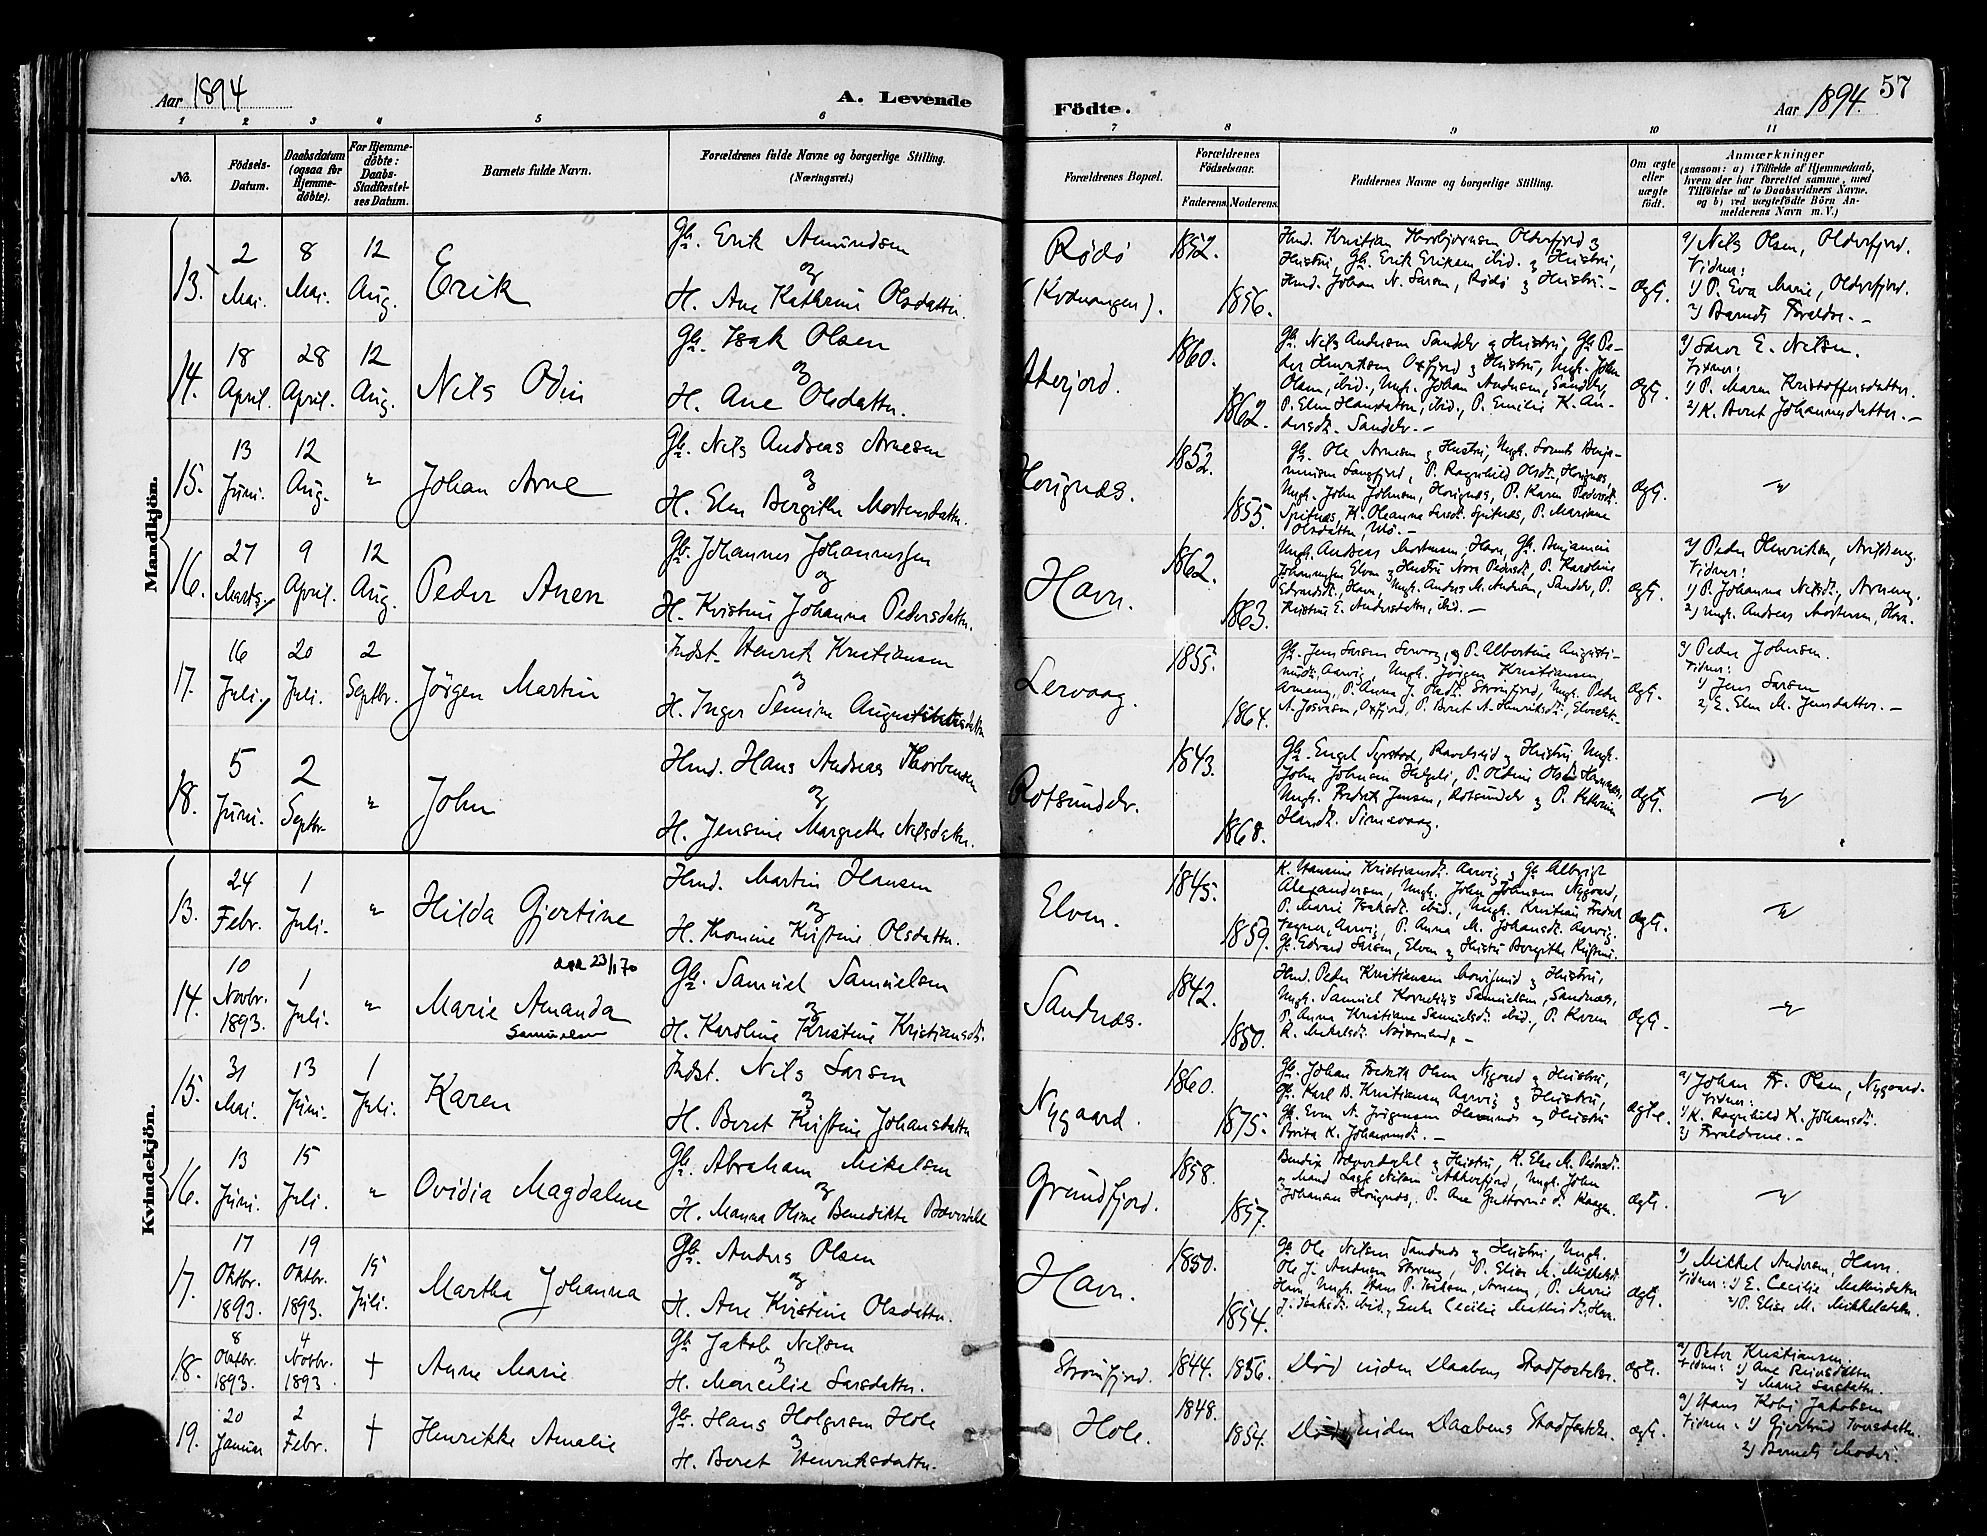 Aar 1894
A. Levende
Födte.
Aar 1894.
57
1 2 3 4 5 6 7 8 9 10 11
No.
Födsels-
Datum.
Daabsdatum
(ogsaa for
Hjemme-
döbte).
For Hjemme-
döbte:
Daabs-
Stadfæstel-
ses Datum.
Barnets fulde Navn.
Forældrenes fulde Navne og borgerlige Stilling.
(Næringsvei.)
Forældrenes Bopæl.
Forældrenes
Födselsaar.
Faderens.
Moderens.
Faddernes Navne og borgerlige Stilling.
Om ægte
eller
uægte
födt.
Anmærkninger
(saasom: a) i Tilfælde af Hjemmedaab,
hvem der har forrettet samme, med
Tilföielse af to Daabsvidners Navne,
og b) ved uægtefödte Börn An-
melderens Navn m. V.)
Mandkjön.
13. 2 Mai. 8 Mai. 12 Aug. Erik
Gb. Erik Amundsen
og
H. Ane Kathrine Olsdatter.
Rödö
(Kvænangen).
1852. 1856.
Hmd. Kristian Thorbjørnsen Oldersfjord og
Hustru, Gb. Erik Eriksen ibid. og Hustru,
Hmd. Johan N. Larsen, Rödö og Hustru. –
ægt.
a) Nils Olsen, Oldersfjord.
Vidner:
1) P. Eva Marie, Oldersfjord.
2) Barnets Forældre. –
14. 18 April. 28 April. 12 Aug. Nils Odin
Gb. Isak Olsen
og
H. Ane Olsdatter.
1860. 1862.
Gb. Nils Andersen Sandør og Hustru, Gb. Pe-
der Henriksen Oxfjord og Hustru, Ungk. John
Olsen, ibid., Ungk. Johan Andersen, Sandør,
P. Elen Hansdatter, ibid., P. Emilie K. An-
dersdt. Sandør. –
ægt.
Vidner:
1) P. Maren Kristoffersdatter.
2) K. Beret Johannesdatter. –
15. 13 Juni. 12 Aug. " Johan Arne
Gb. Nils Andreas Arnesen
og
H. Elen Bergithe Mortensdatter.
1852. 1855.
Gb. Ole Arnesen og Hustru, Ungk. Lorents Benja-
minsen Langfjord, P. Ragnhild Olsdt., Hougnæs,
Ungk. John Johnsen, Hougnæs, P. Karen Pedersdt.
Spitnæs, K. Oleanna Larsdt. Spitnæs, P. Mariane
Olsdatter,
ægt.
"
16. 27 Marts. 9 April. 12 Aug. Peder Anen
Gb. Johannes Johannesen
og
H. Kristine Johanna Pedersdatter.
Havn.
1862. 1863.
Ungk. Andreas Mortensen, Havn, Gb. Benjamin
Johannesen Elven og Hustru Nora Pedersdt., P. Karoline
Edvardsdt., Havn, Ungk. Anders M. Andersen, Sandør, P.
Kristine E. Andersdatter, ibid. –
ægt.
a) Peder Henriksen,
Vidner:
1) P. Johanna Nilsdt.,
2) Ungk. Andreas Mortensen, Havn.
17. 16 Juli. 20 Juli. 2 Septbr. Jörgen Martin
Indst. Henrik Kristiansen
og
H. Inger Semine Augustinusdatter
Lervaag.
1855. 1864.
Gb. Jens Larsen Lervaag, og P. Albertine Augusti-
nusdt. Aarvig, Ungk. Jörgen Kristiansen
P. Anna J. Strömfjord, Ungk. Peder
A. Josvasen, Oxfjord, P. Beret A. Henriksdt.,
ægt.
a) Peder Johnsen.
Vidner:
1) Jens Larsen
2) E. Elen M. Jensdatter. –
18. 5 Juni. 2 Septbr. " John
Hmd. Hans Andreas Thorbensen
og
H. Jensine Margrethe Nilsdatter.
Rotsundelv.
1843. 1868.
Gb. Engel Ravelseid og Hustru, Ungk.
John Johnsen
Ungk. Fredrik Jensen, Rotsundelv og P. Kathrine
Hansdt.
ægt.
"
Kvindekjön.
13. 24 Febr. 1 Juli. " Hilda Gjertine
Hmd. Martin Hansen
og
H. Thomine Kristine Olsdatter.
Elven.
1845. 1859.
K. Hansine Kristiansdt. Aarvig og Gb. Albrigt
Alexandersen, Ungk. John Johnsen Nygaard,
P. Marie Isaksdt. ibid., Ungk. Kristian Fredrik
Aarvig, P. Anna M. Johansdt. Aarvig,
Gb. Edvard Larsen, Elven og Hustru Bergithe Kristine.
ægt.
"
14. 10 Novbr. 1893. 1 Juli. " Marie Amanda
Samuelsen
23/1 70
Gb. Samuel Samuelsen
og
H. Karoline Kristine Kristiansdt.
Sandnæs.
1842. 1850.
Hmd. Peder Kristiansen og Hustru,
Ungk. Samuel Kornelius Samuelsen, Sandnæs,
P. Anna Kristiane Samuelsdt. ibid., P. Karen
K. Mikelsdt. –
ægt.
"
15. 31 Mai. 13 Juni. 1 Juli. Karen
Indst. Nils Larsen
og
H. Beret Kristine Johansdatter
Nygaard.
1860. 1875.
Gb. Johan Fredrik Olsen Nygaard og Hustru,
Gb. Karl B. Kristiansen Aarvig og Hustru,
Gb. Even A. Jörgensen Havnnes og Hustru
Berita K. Johannesdt. –
ægte.
a) Johan Fr. Olsen, Nygaard.
Vidner:
1) K. Ragnhild K. Johansdt.
2) Forældrene. –
16. 13 Juni. 15 Juli. " Ovidia Magdalene
Gb. Abraham Mikelsen
og
H. Manna Oline Benedikte
Grundfjord.
1858. 1857.
Bendix og Hustru, K. Else M. Pedersdt.
og Mand Lasse Nilsen Akkerfjord, Ungk. John
Johansen Hougnæs, P. Ane Guttormsdt. Kaagen.
ægt.
"
17. 17 Oktbr. 1893. 19 Oktbr. 1893. 15 Juli. Martha Johanna
Gb. Anders Olsen
og
H. Ane Kristine Olsdatter.
Havn.
1850. 1854.
Gb. Ole Nilsen Sandnæs og Hustru, Ungk.
Ole J. Andersen P. Elise M. Mikkelsdt.
Havn, Ungk. Hans P. Isaksen, P. Marie
J. Isaksdt. ibid., Enke Cecilie Mathisdt., Havn.
ægt.
a) Mikkel Andersen, Havn.
Vidner: 1) E. Cecilie Mathisdatter
2) P. Elise M. Mikkelsdatter.
18. 8 Oktbr. 1893. 4 Novbr. 1893 † Anne Marie
Gb. Jakob Nilsen
og
H. Marcelie Larsdatter.
Strömfjord.
1844. 1856.
Död inden Daabens Stadfæstelse.
ægte.
a) Peter Kristiansen
Vidner: 1) Ane Reiersdatter
2) Marie Larsdatter.
19. 20 Januar 2 Febr. † Henrikke Amalie
Gb. Hans Holgersen Hole
og
H. Beret Henriksdatter.
Hole.
1848. 1854.
Död inden Daabens Stadfæstelse.
ægt.
a) Hans Kobi Jakobsen
Vidner: 1) Gjertrud Iversdatter.
2) Barnets Moder.